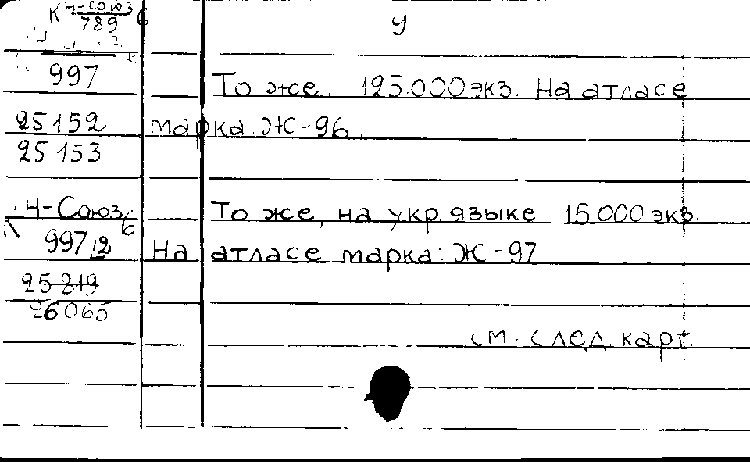 К Ч-Союз 6
789
У
997
То же. 125.000 экз. На атласе
25152
марка. Ж-96.
25153
Ч-Союз/6
То же, на укр. языке 15.000 экз.
997/2
На атласе марка: Ж-97
25219
26065
см. след. карт.